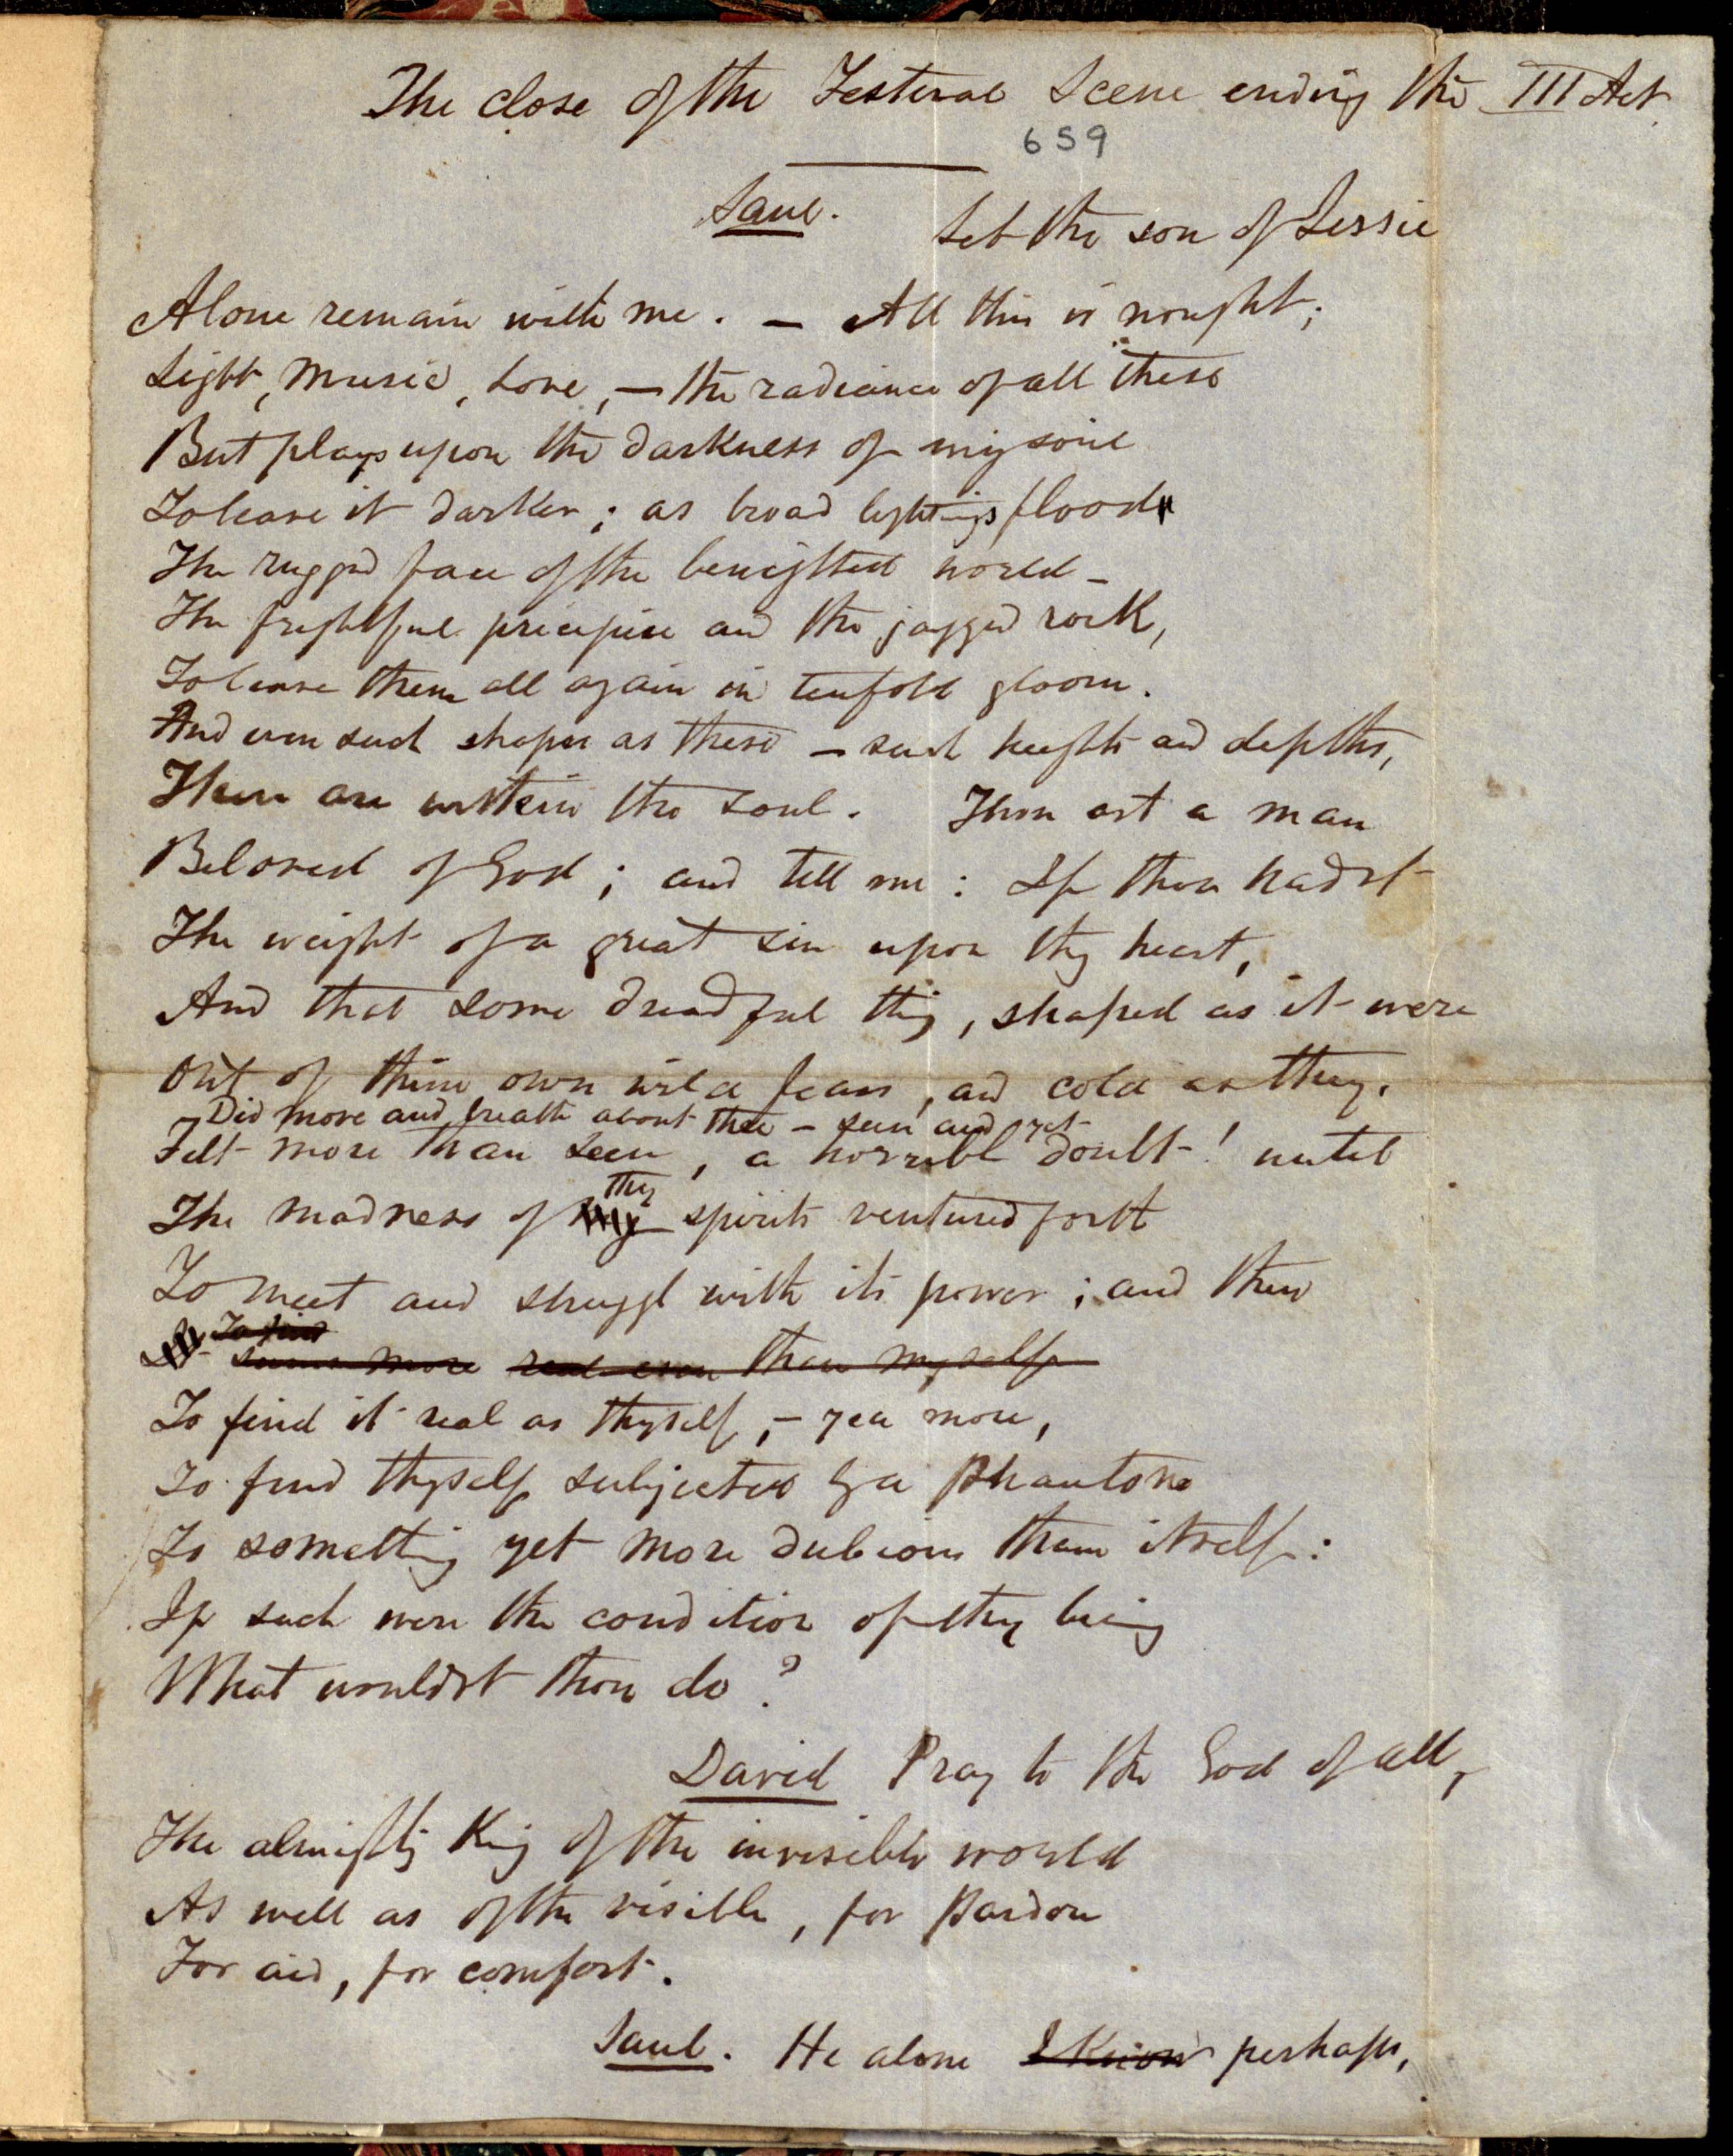 The close of the Festeval Scene ending the III Act
659
Saul. Let the son of Jessie
Alone remain with me. — All this is nought;
Light, Music, Love, — the radiance of all these
But plays upon the darkness of my soul
To leave it darker; as broad lightnings flood
The rugged face of the benighted world —
The frightful precipice and the jagged rock,
To leave them all again in tenfold gloom.
And even such shapes as these — such heights and depths,
There are within the soul. Thou art a man
Beloved of God; and tell me: If thou hadst
The weight of a great sin upon thy heart,
And that some dreadful thing, shaped as it were
Out of thine own wild fears, and cold as they,
Did move and breathe about thee — seen and yet
Felt more than seen, a horrible doubt! until
The madness of thy spirits ventured forth
To meet and struggl with its power; and then
To find
seems more real even than myself
To find it real as thyself, — yea more,
To find thyself subjected by a Phantom
To something yet more dubious than itself:
If such were the condition of thy being
What wouldst thou do?
David Pray to the God of all,
The almighty King of the invisible world
As well as of the visible, for pardon
For aid, for comfort.
Saul. He alone I know perhaps,